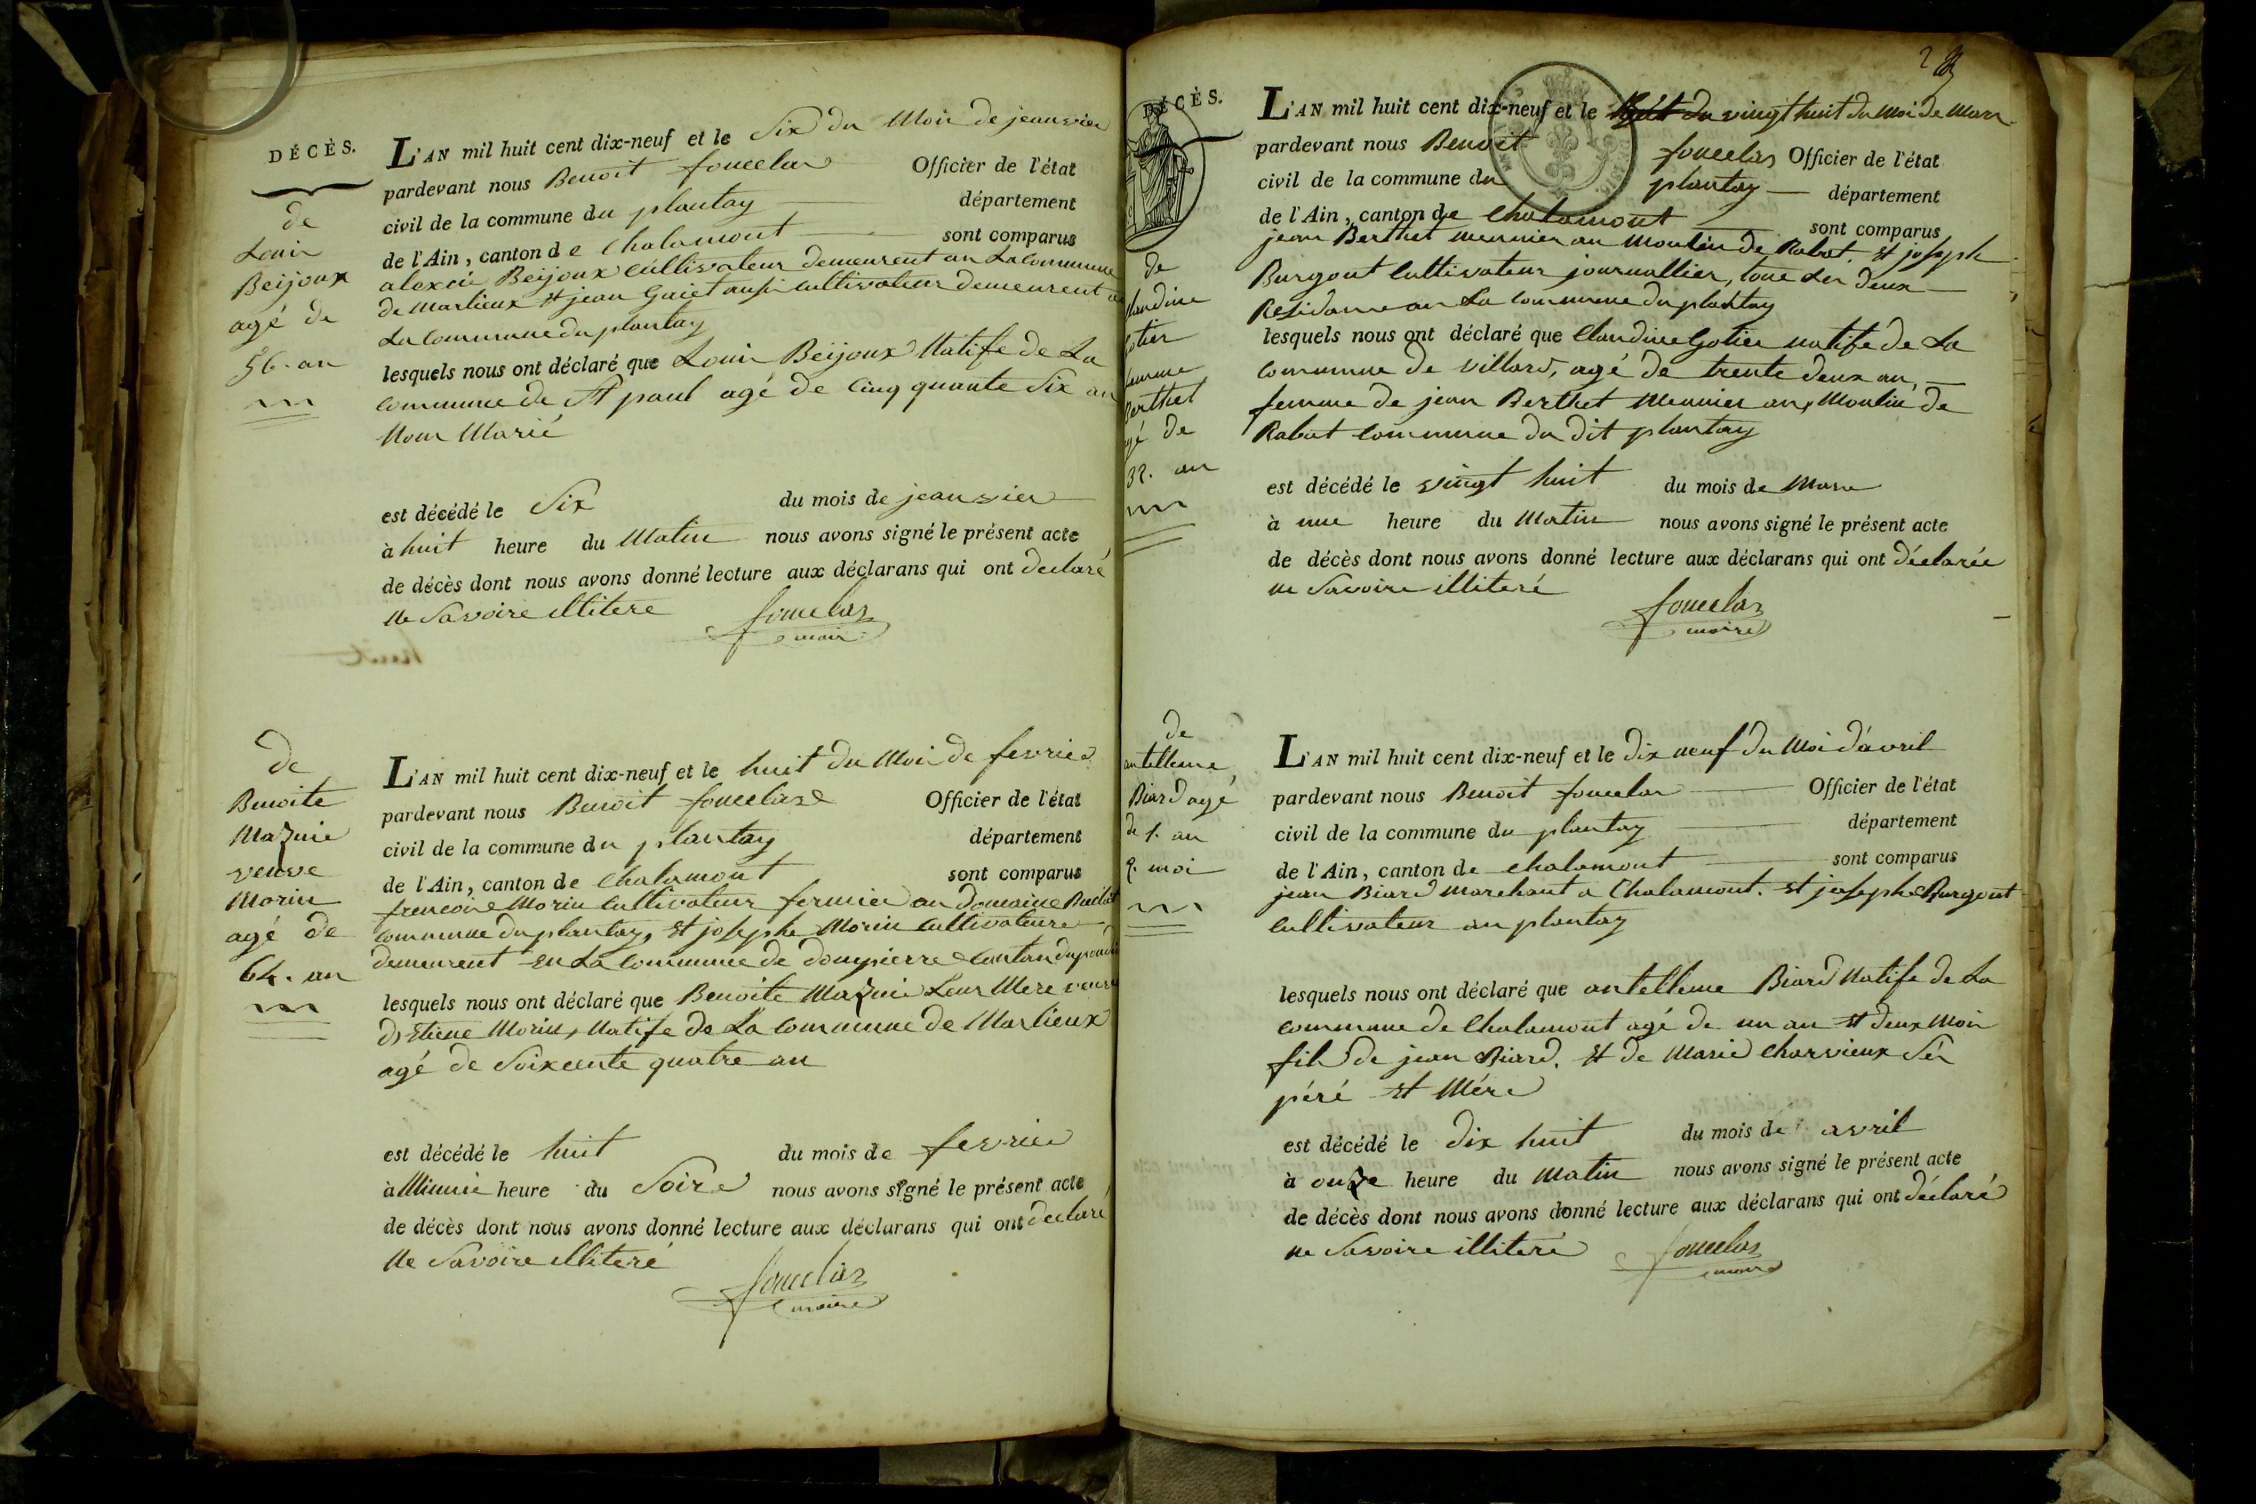 DÉCÈS.
de
Louis
Beijoux
agé de
56. an
L'AN mil huit cent dix-neuf et le Six du Mois de jeanvier
pardevant nous Benoit fouuelas Officier de l'état
civil de la commune du plantay département
de l'Ain, canton de Chalamont sont comparus
alexcii Beijoux cultivateur demeurent au La Commune
de Marlieux et jean Guiet ausi cultivateur demeurent
La Commune du plantay
lesquels nous ont déclaré que Louis Beijoux Natife de La
commune de St paul agé de Cinq quante Six an
Nom Marié
est décédé le Six du mois de jeanvier
à huit heure du Matin nous avons signé le présent acte
de décès dont nous avons donné lecture aux déclarans qui ont declaré
Ne Savoire illitere
fouuelas
maire
de
Benoite
Mazuie
veuve
Morin
agé de
64. an
L'AN mil huit cent dix-neuf et le huit du Moi de fevrier
pardevant nous Benoit fouuelas Officier de l'état
civil de la commune du plantay département
de l'Ain, canton de Chalamont sont comparus
frencoise Morin Cultivateur fermier au domaine
commune du plantay, et josephe Morin Cultivateure
demeurent en La Commune de dompierre canton du
lesquels nous ont déclaré que Benoite Mazuie Leur Mere veuve
d'Etiene Morin, Natife de La commune de Marlieux
agé de Soixcente quatre an
est décédé le huit du mois de fevrier
à Minuie heure du Soire nous avons signé le présent acte
de décès dont nous avons donné lecture aux déclarans qui ont declaré
Ne Savoire illiteré
fouuelas
maire
DÉCÈS.
de
landine
otier
femme
Berthet
gé de
32. an
L'AN mil huit cent dix-neuf et le vingt huit du Moi de Mars
pardevant nous Benoit fouuelas Officier de l'état
civil de la commune du plantay département
de l'Ain, canton de Chalamont sont comparus
jean Berthet meunier au Moulin de Rabat. et joseph
Burgout Cultivateur journallier, tous Les deux
Residans au La Commune du plantay
lesquels nous ont déclaré que Claudine Gotier natife de La
Commune de villars, agé de trente deux an,
femme de jean Berthet Meunier au Moulin de
Rabat commune du dit plantay
est décédé le vingt huit du mois de Mars
à une heure du Matin nous avons signé le présent acte
de décès dont nous avons donné lecture aux déclarans qui ont déclarée
ne Savoire illiteré
fouuelas
maire
de
antelleme
Biard agé
de 1. an
2. moi
L'AN mil huit cent dix-neuf et le dix neuf du Moi d'avril
pardevant nous Benoit fouuelas Officier de l'état
civil de la commune du plantay département
de l'Ain, canton de chalamont sont comparus
jean Biard marchant a Chalamont. et josephe Burgout
Cultivateur au plantay
lesquels nous ont déclaré que antelleme Biard Natife de La
commune de Chalamont agé de un an et deux Mois
fils de jean Biard. et de Marie Charvieux Ses
péré et Mére
est décédé le dix huit du mois de avril
à onze heure du Matin nous avons signé le présent acte
de décès dont nous avons donné lecture aux déclarans qui ont déclaré
ne Savoire illiteré
fouuelas
maire